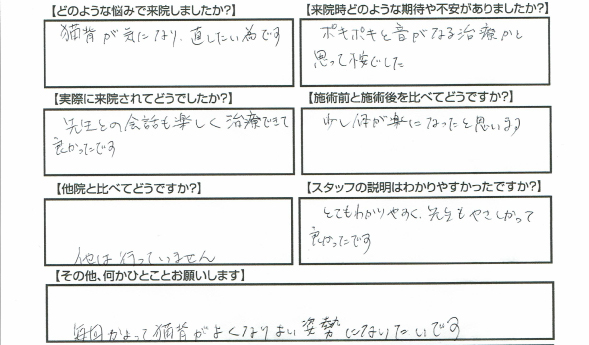 【どのような悩みで来院しましたか?】
猫背が気になり、直したい為です
【来院時どのような期待や不安がありましたか?】
ポキポキと音がなる治療かと
思って来ました
【実際に来院されてどうでしたか?】
先生との会話も楽しく治療できて
良かったです
【施術前と施術後を比べてどうですか?】
少し体が楽になったと思います
【他院と比べてどうですか?】
他は行っていません
【スタッフの説明はわかりやすかったですか?】
とてもわかりやすく、先生もやさしかって
良かったです
【その他、何かひとことお願いします】
毎回かよって猫背がよくなりよい姿勢になりたいです